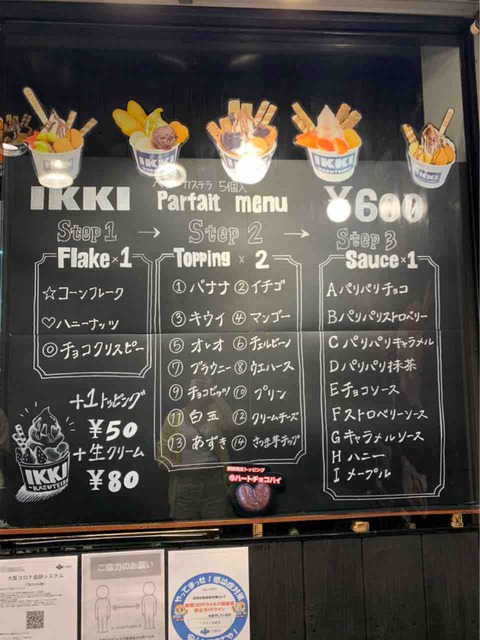 IKKI
カステラ 5個入
Parfait menu
¥600
Step 1 → Step 2 → Step 3
Flake×1
☆コーンフレーク
♡ハニーナッツ
◎チョコクリスピー
+1トッピング
¥50
+生クリーム
¥80
IKKI
Topping × 2
①バナナ ②イチゴ
③キウイ ④マンゴー
⑤オレオ ⑥チェルビーン
⑦ブラウニー ⑧ウエハース
⑨チョコピッツ ⑩プリン
⑪白玉 ⑫クリームチーズ
⑬あずき ⑭さつま芋チップ
期間限定トッピング
ハートチョコパイ
Sauce×1
Aパリパリチョコ
Bパリパリストロベリー
Cパリパリキャラメル
Dパリパリ抹茶
Eチョコソース
Fストロベリーソース
Gキャラメルソース
Hハニー
Iメープル
大阪コロナ追跡システム
ご協力のお願い